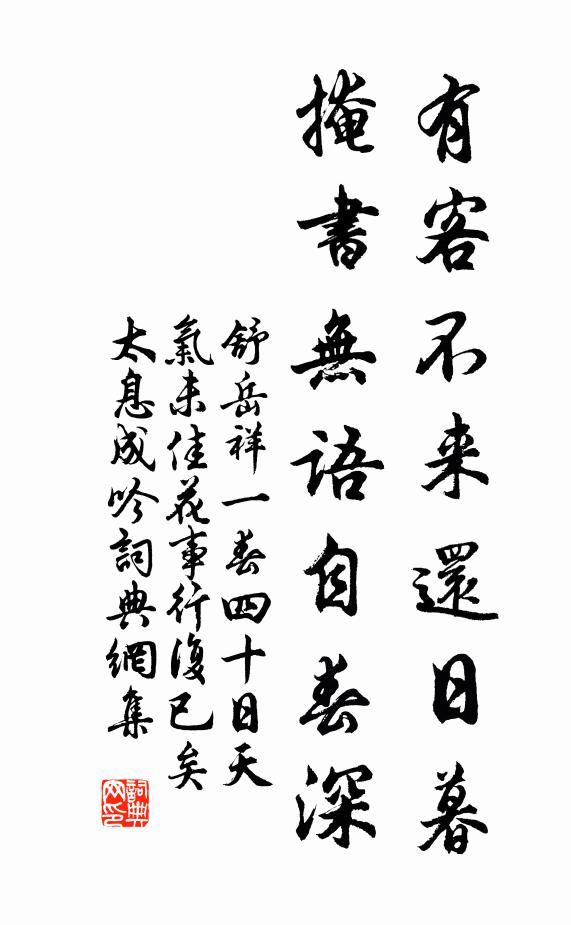 有客不来還日暮
掩書無語自春深
舒岳祥一春四十日天
氣未佳花事行復已矣
太息成吟詞典網集
詞典網印